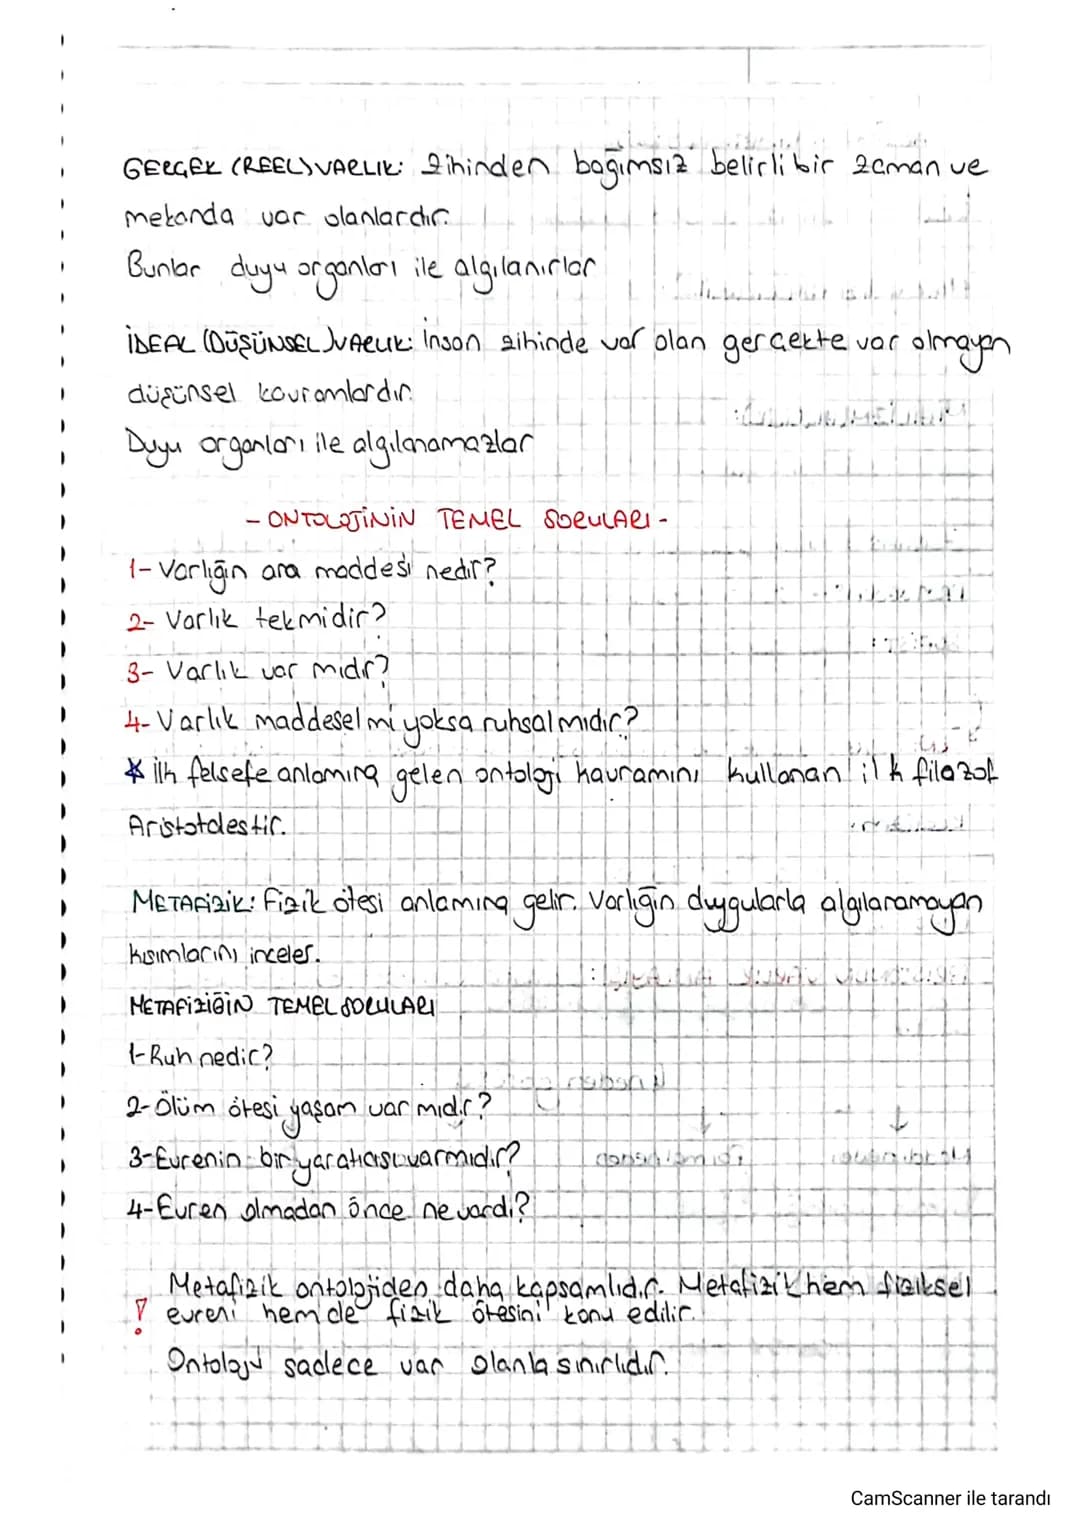 GERÇEK (REEL) VARLIK: Zihinden bağımsız belirli bir zaman ve
mekanda var olanlardır.
Bunlar duyu organları ile algılanırlar
İDEAL (DÜŞÜNSEL) VARLIK: İnsan zihinde var olan gerçekte var olmayan
düşünsel kavramlardır.
Duyu organları ile algılanamazlar
- ONTOLOJİNİN TEMEL SORULARI -
1- Varlığın ana maddesi nedir?
2- Varlık tekmidir?
3- Varlık var mıdır?
4- Varlık maddesel mi yoksa ruhsal mıdır?
* İlk felsefe anlamına gelen ontoloji kavramını kullanan ilk filozof
Aristotalestir.
METAFİZİK: Fizik ötesi anlamına gelir. Varlığın duygularla algılanamayan
kısımlarını inceler.
METAFİZİĞİN TEMEL SORULARI
1- Ruh nedir?
2- Ölüm ötesi yaşam var mıdır?
3- Evrenin bir yaratıcısı varmıdır?
4- Evren olmadan önce ne vardı?
Metafizik ontolojiden daha kapsamlıdır. Metafizik hem fiziksel
! evreni hem de fizik ötesini konu edilir.
Ontoloji sadece var olanla sınırlıdır.
CamScanner ile tarandı